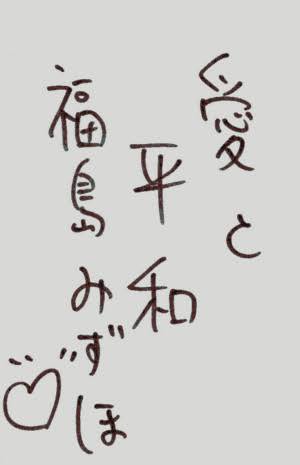 愛と
平和
福島みずほ